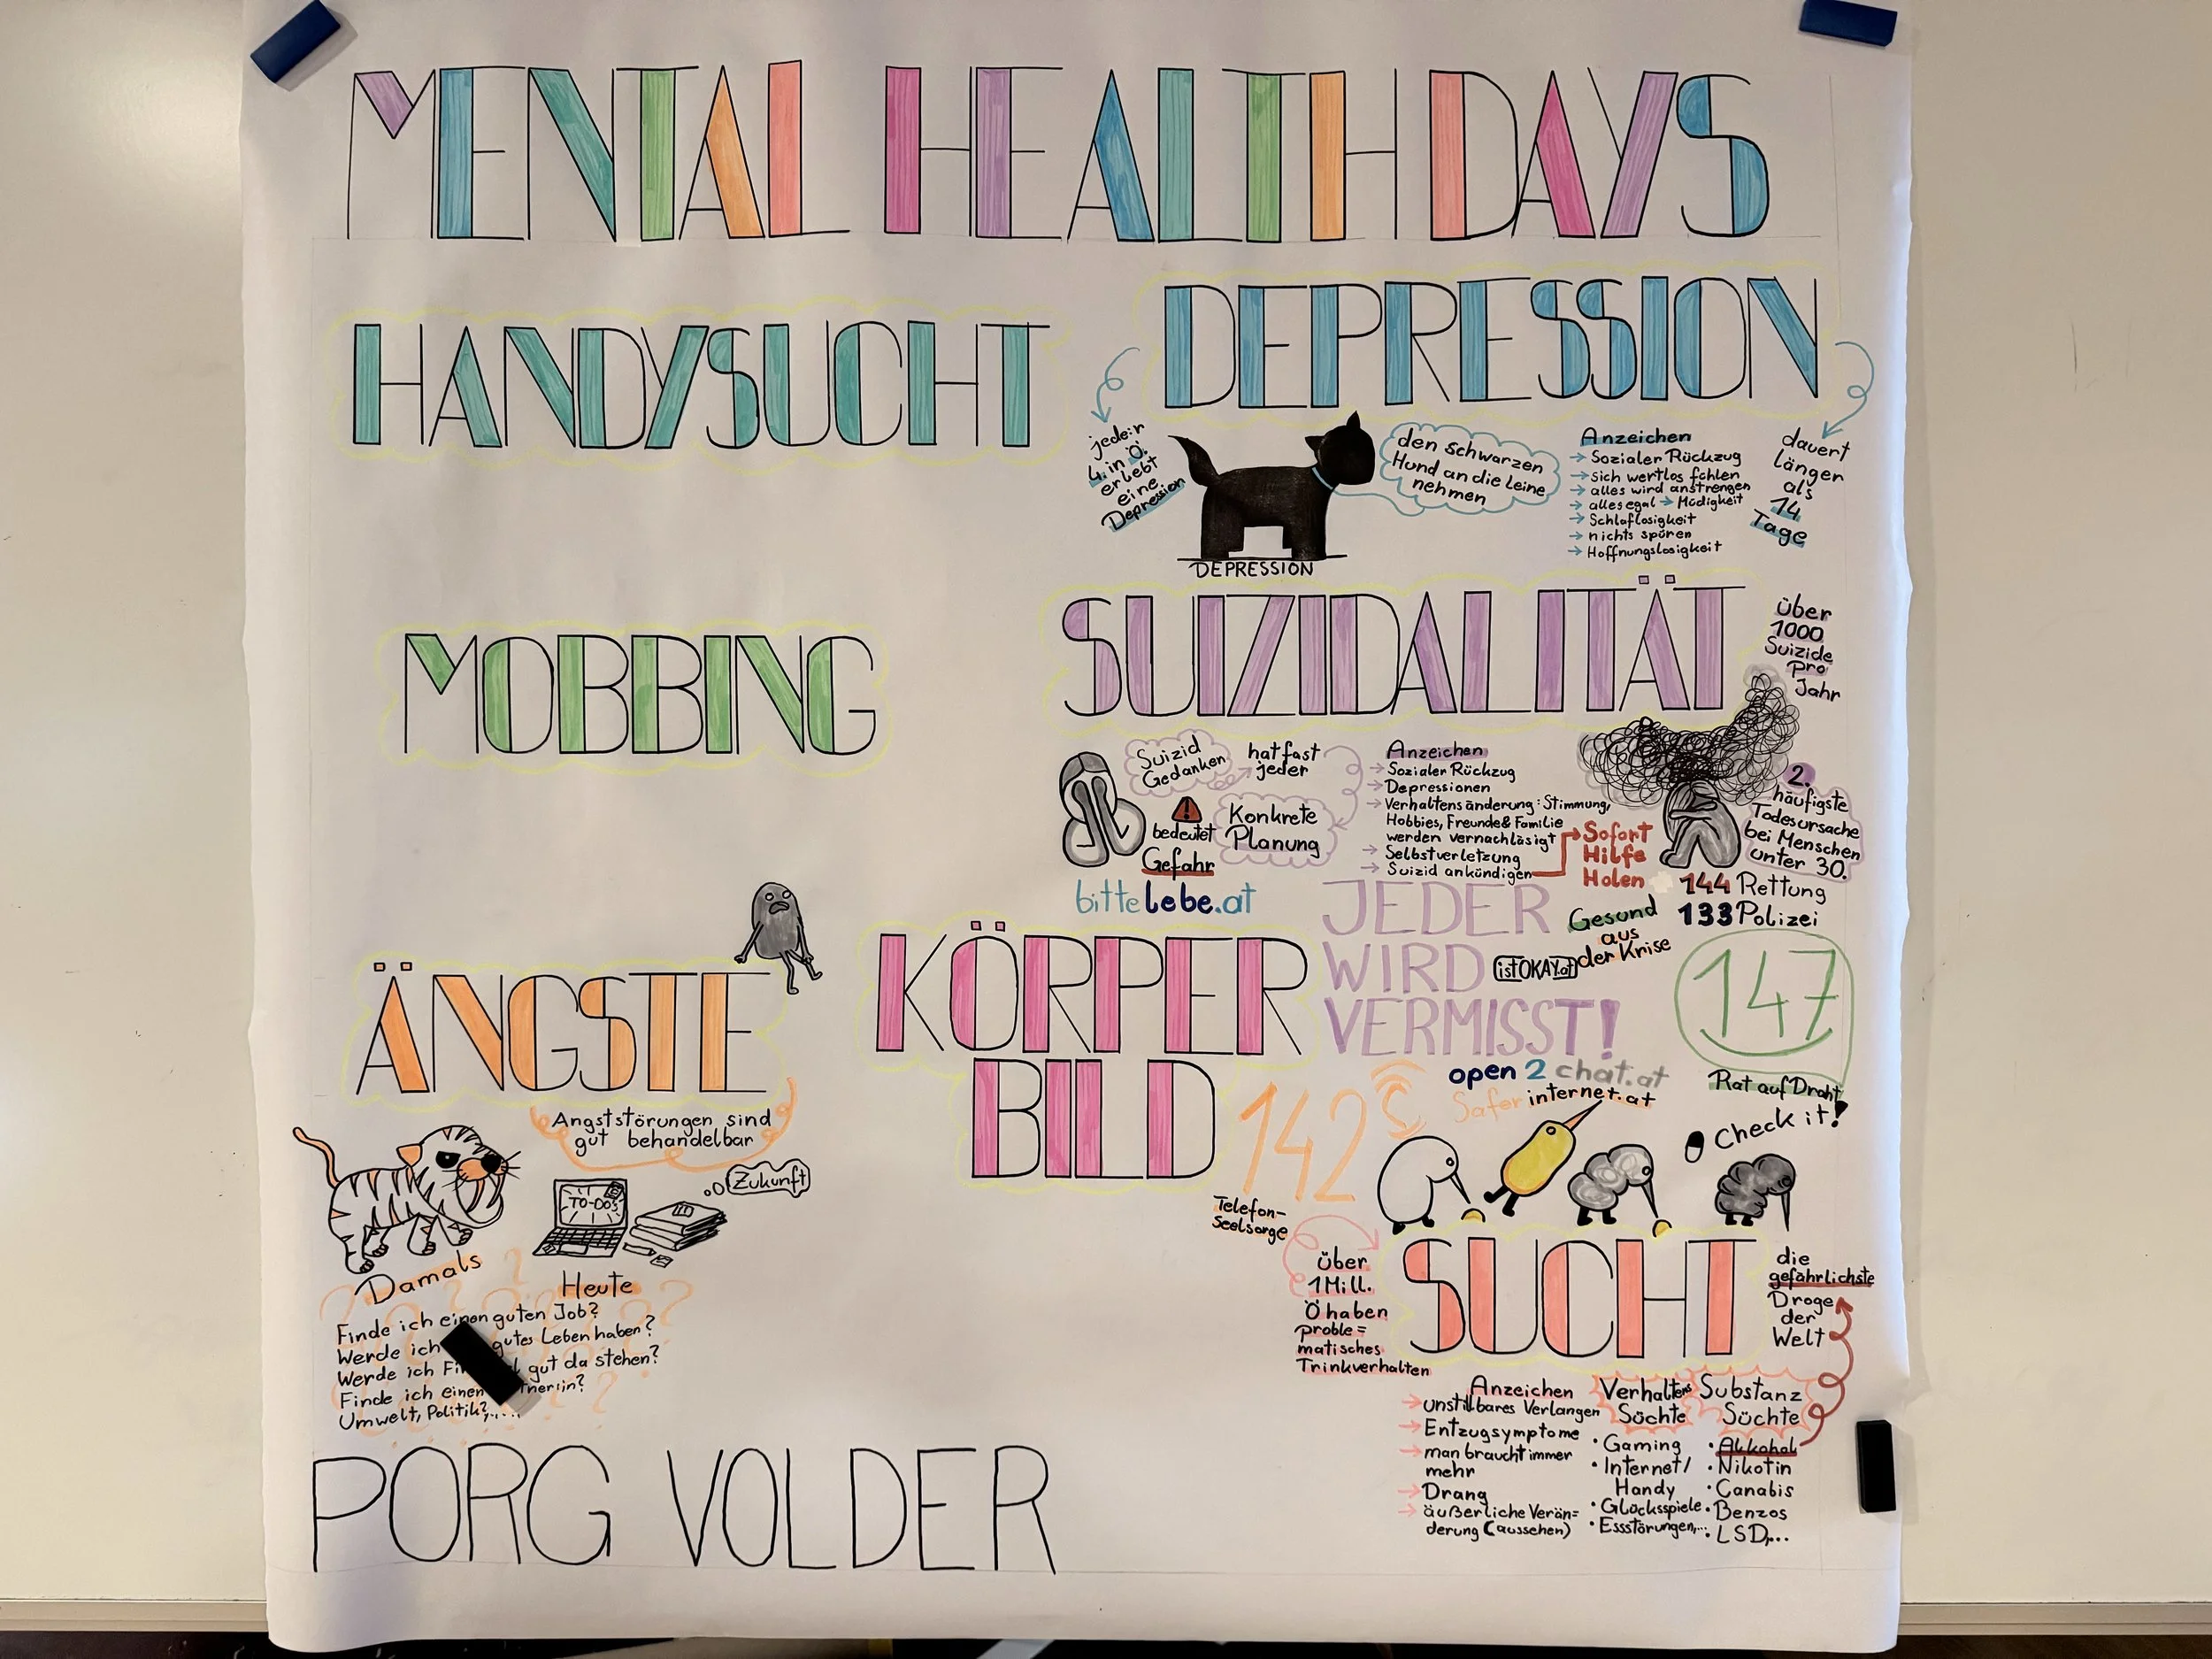 MENTAL HEALTH DAYS
HANDYSUCHT
DEPRESSION
jede:r
4. in Ö.
erlebt
eine
Depression
DEPRESSION
den schwarzen
Hund an die leine
nehmen
Anzeichen
→ Sozialer Rückzug
→ sich wertlos fühlen
→ alles wird anstrengen
→ alles egal → Müdigkeit
→ Schlaflosigkeit
→ nichts spüren
→ Hoffnungslosigkeit
dauert
länger
als
14
Tage
MOBBING
SUIZIDALITÄT
über
1000
Suizide
pro
Jahr
Suizid
Gedanken
hat fast
jeder
bedeutet
Gefahr
Konkrete
Planung
Anzeichen
→ Sozialer Rückzug
→ Depressionen
→ Verhaltensänderung: Stimmung,
Hobbies, Freunde & Familie
werden vernachläsigt
→ Selbstverletzung
→ Suizid ankündigen
Sofort
Hilfe
Holen
2.
häufigste
Todesursache
bei Menschen
unter 30.
144 Rettung
133 Polizei
bittelebe.at
JEDER
WIRD
VERMISST!
Gesund
aus
der Krise
istOKAY.at
147
Rat auf Draht
Check it!
open 2 chat.at
Saferinternet.at
142
Telefon-
Seelsorge
ÄNGSTE
Angststörungen sind
gut behandelbar
TO-DOS
Zukunft
Damals
Heute
Finde ich einen guten Job?
Werde ich gutes Leben haben?
Werde ich gut da stehen?
Finde ich einen
Umwelt, Politik?,...
KÖRPER
BILD
SUCHT
über
1 Mill.
Ö haben
proble=
matisches
Trinkverhalten
die
gefährlichste
Droge
der
Welt
Anzeichen
→ unstillbares Verlangen
→ Entzugsymptome
→ man braucht immer
mehr
→ Drang
→ äußerliche Verän=
derung (aussehen)
Verhaltens
Süchte
• Gaming
• Internet/
Handy
• Glücksspiele
• Essstörungen,...
Substanz
Süchte
• Alkohol
• Nikotin
• Canabis
• Benzos
• LSD,...
PORG VOLDER